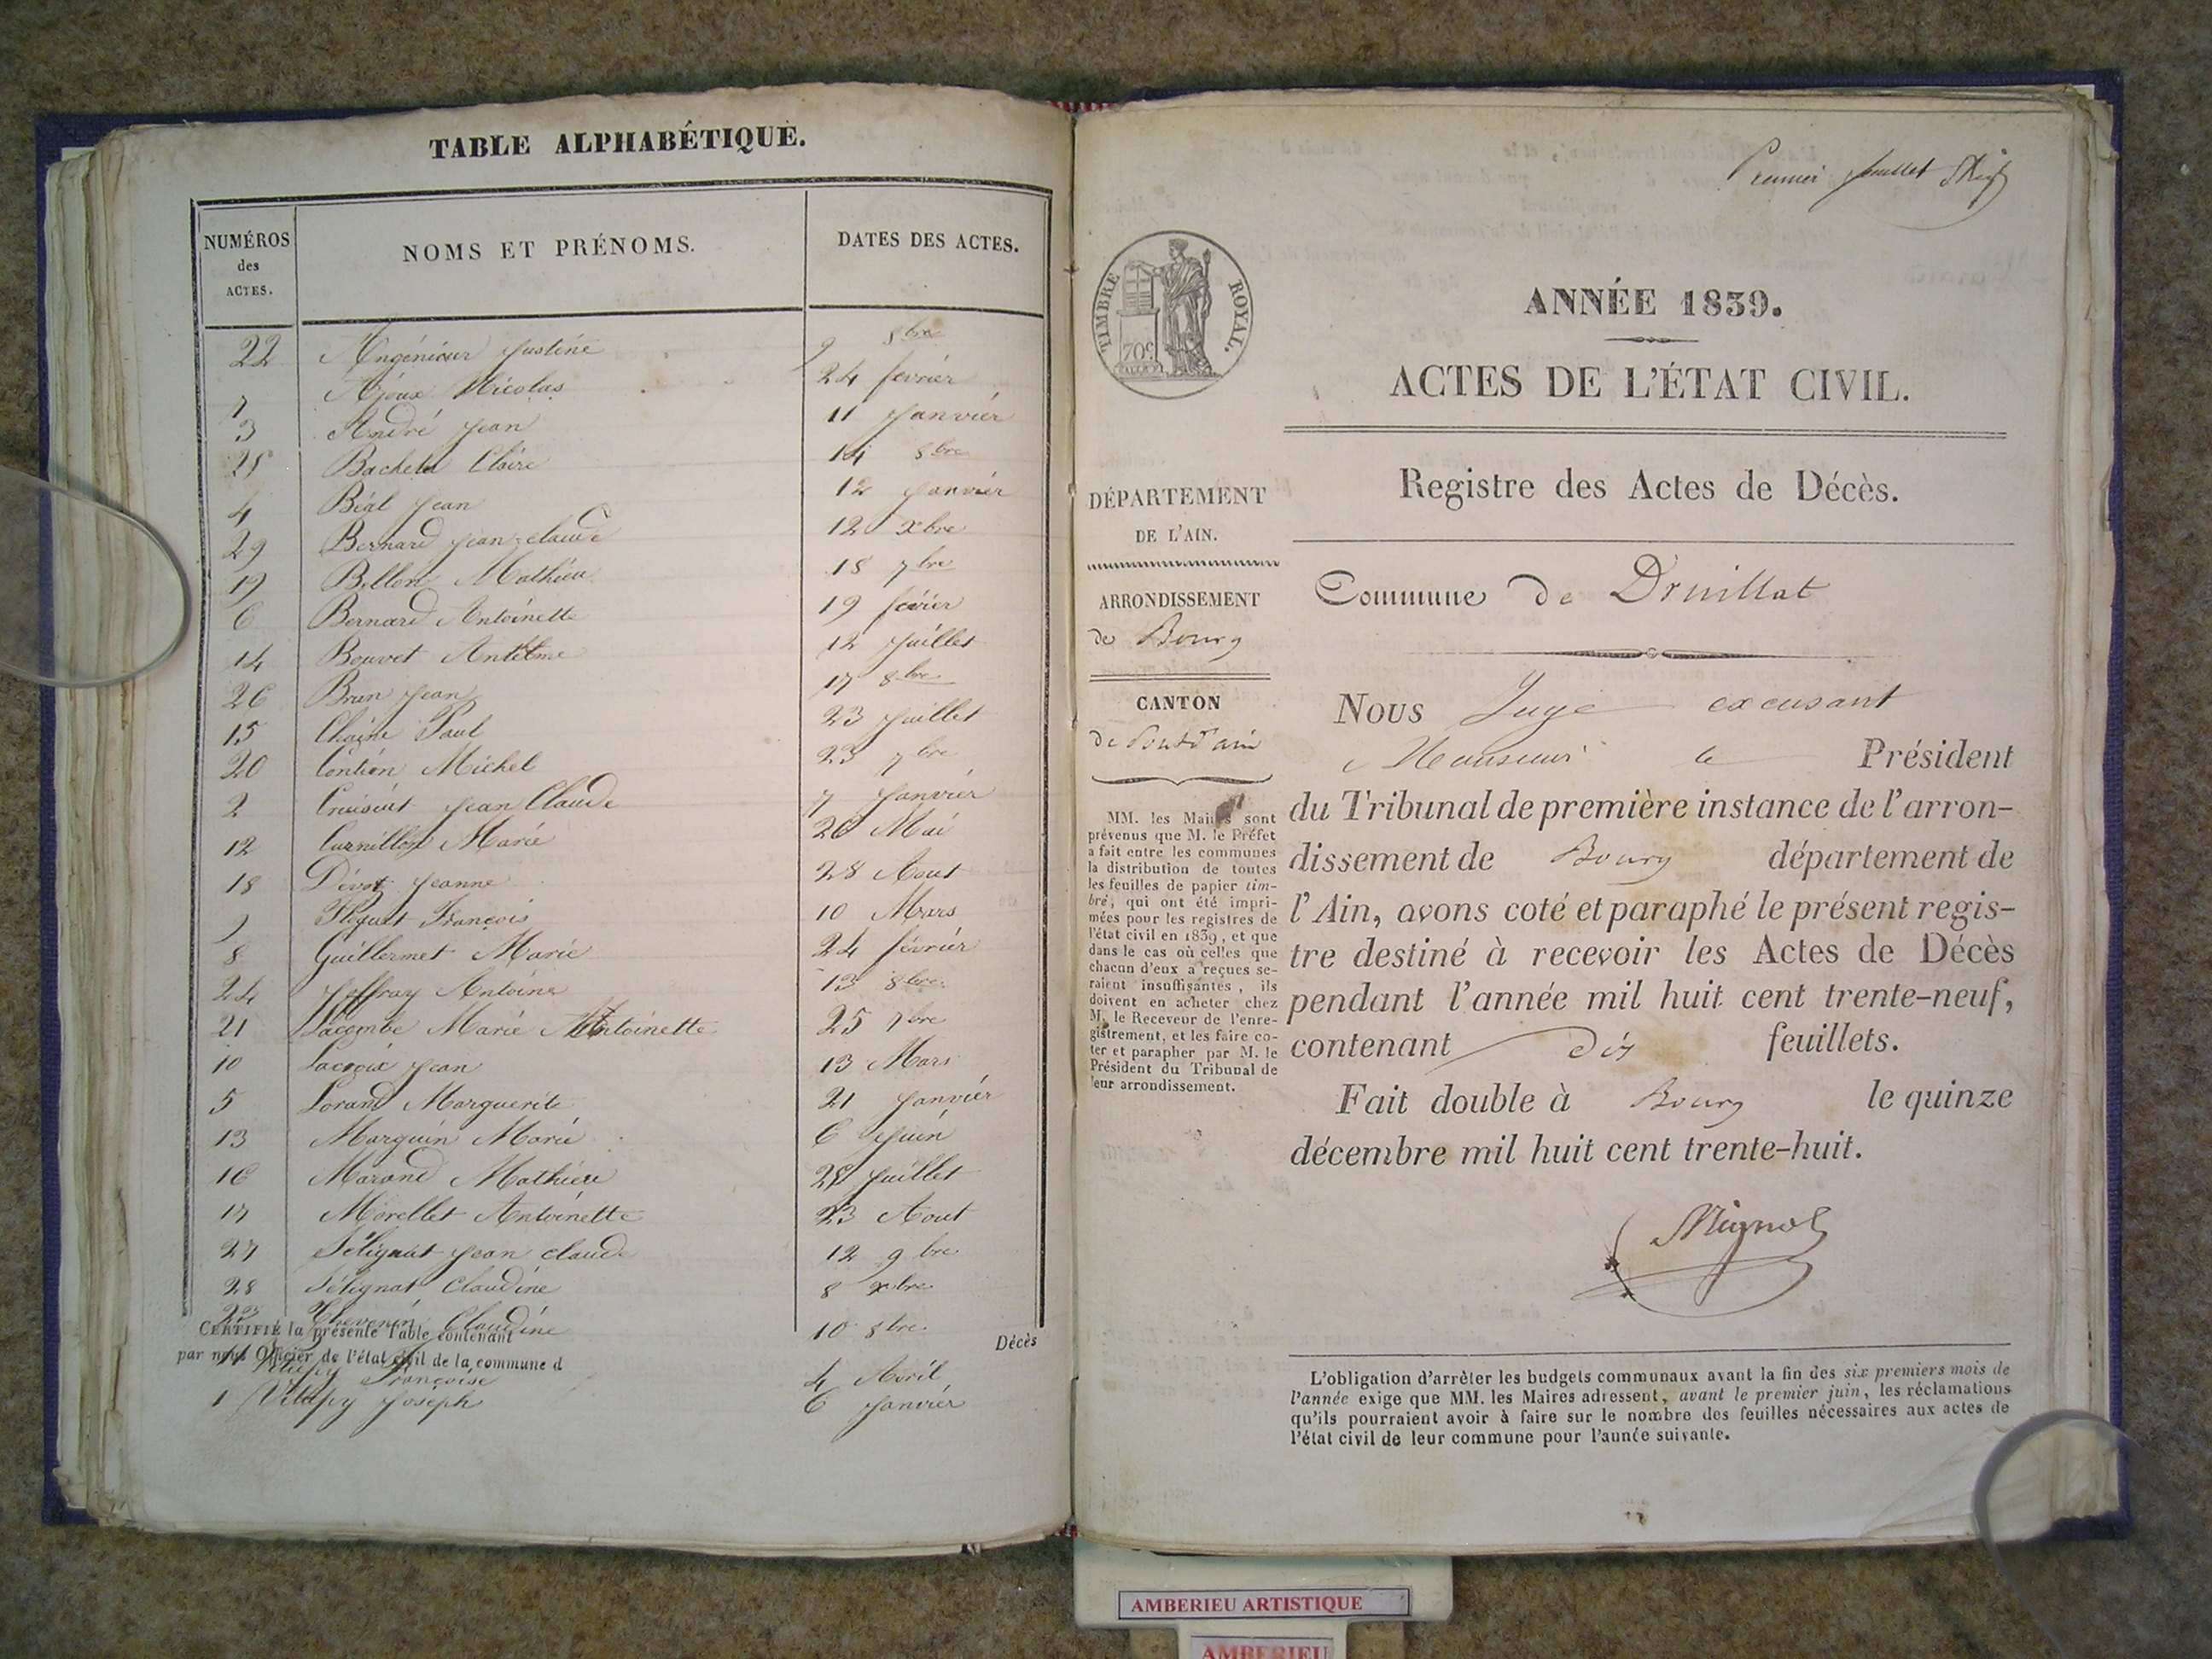 TABLE ALPHABÉTIQUE.
NUMÉROS des ACTES. NOMS ET PRÉNOMS. DATES DES ACTES.
22 Ingénieur Justine 9 8bre
7 Ajoux Nicolas 24 février
3 André Jean 11 Janvier
25 Claire 14 8bre
4 Bial Jean 12 Janvier
29 Bernard Jean-claude 12 xbre
19 Bellon Mathieu 18 7bre
6 Bernard Antoinette 19 février
14 Bouvet Antelme 12 Juillet
26 Brun Jean 17 8bre
15 Chaine Paul 23 Juillet
20 Michel 23 7bre
2 Jean Claude 7 Janvier
12 Curnillon Marie 26 Mai
18 Jeanne 28 Aout
9 François 10 Mars
8 Guillermet Marie 24 février
24 Joffray Antoine 13 8bre
21 Lacombe Marie Antoinette 25 7bre
10 Lacroix Jean 13 Mars
5 Lorand Marguerite 21 Janvier
13 Marguin Marie 6 Juin
16 Marand Mathieu 28 Juillet
17 Morellet Antoinette 23 Aout
27 Sélignat Jean claude 12 9bre
28 Sélignat Claudine 8 xbre
23 Thevenin Claudine 10 8bre
CERTIFIÉ la présente Table contenant Décès
par nous Officier de l'état civil de la commune d
11 Françoise 4 Avril
1 Joseph 6 Janvier
Premier feuillet
TIMBRE ROYAL.
70c
ANNÉE 1839.
ACTES DE L'ÉTAT CIVIL.
Registre des Actes de Décès.
DÉPARTEMENT
DE L'AIN.
ARRONDISSEMENT
de Bourg
CANTON
de Pont d'ain
MM. les Maires sont
prévenus que M. le Préfet
a fait entre les communes
la distribution de toutes
les feuilles de papier tim-
bré, qui ont été impri-
mées pour les registres de
l'état civil en 1839, et que
dans le cas où celles que
chacun d'eux a reçues se-
raient insuffisantes, ils
doivent en acheter chez
M. le Receveur de l'enre-
gistrement, et les faire co-
ter et parapher par M. le
Président du Tribunal de
leur arrondissement.
Commune de Druillat
Nous Juge excusant
Monsieur le Président
du Tribunal de première instance de l'arron-
dissement de Bourg département de
l'Ain, avons coté et paraphé le présent regis-
tre destiné à recevoir les Actes de Décès
pendant l'année mil huit cent trente-neuf,
contenant dix feuillets.
Fait double à Bourg le quinze
décembre mil huit cent trente-huit.
Mignot
L'obligation d'arrêter les budgets communaux avant la fin des six premiers mois de
l'année exige que MM. les Maires adressent, avant le premier juin, les réclamations
qu'ils pourraient avoir à faire sur le nombre des feuilles nécessaires aux actes de
l'état civil de leur commune pour l'aunée suivante.
AMBERIEU ARTISTIQUE
AMBERIEU